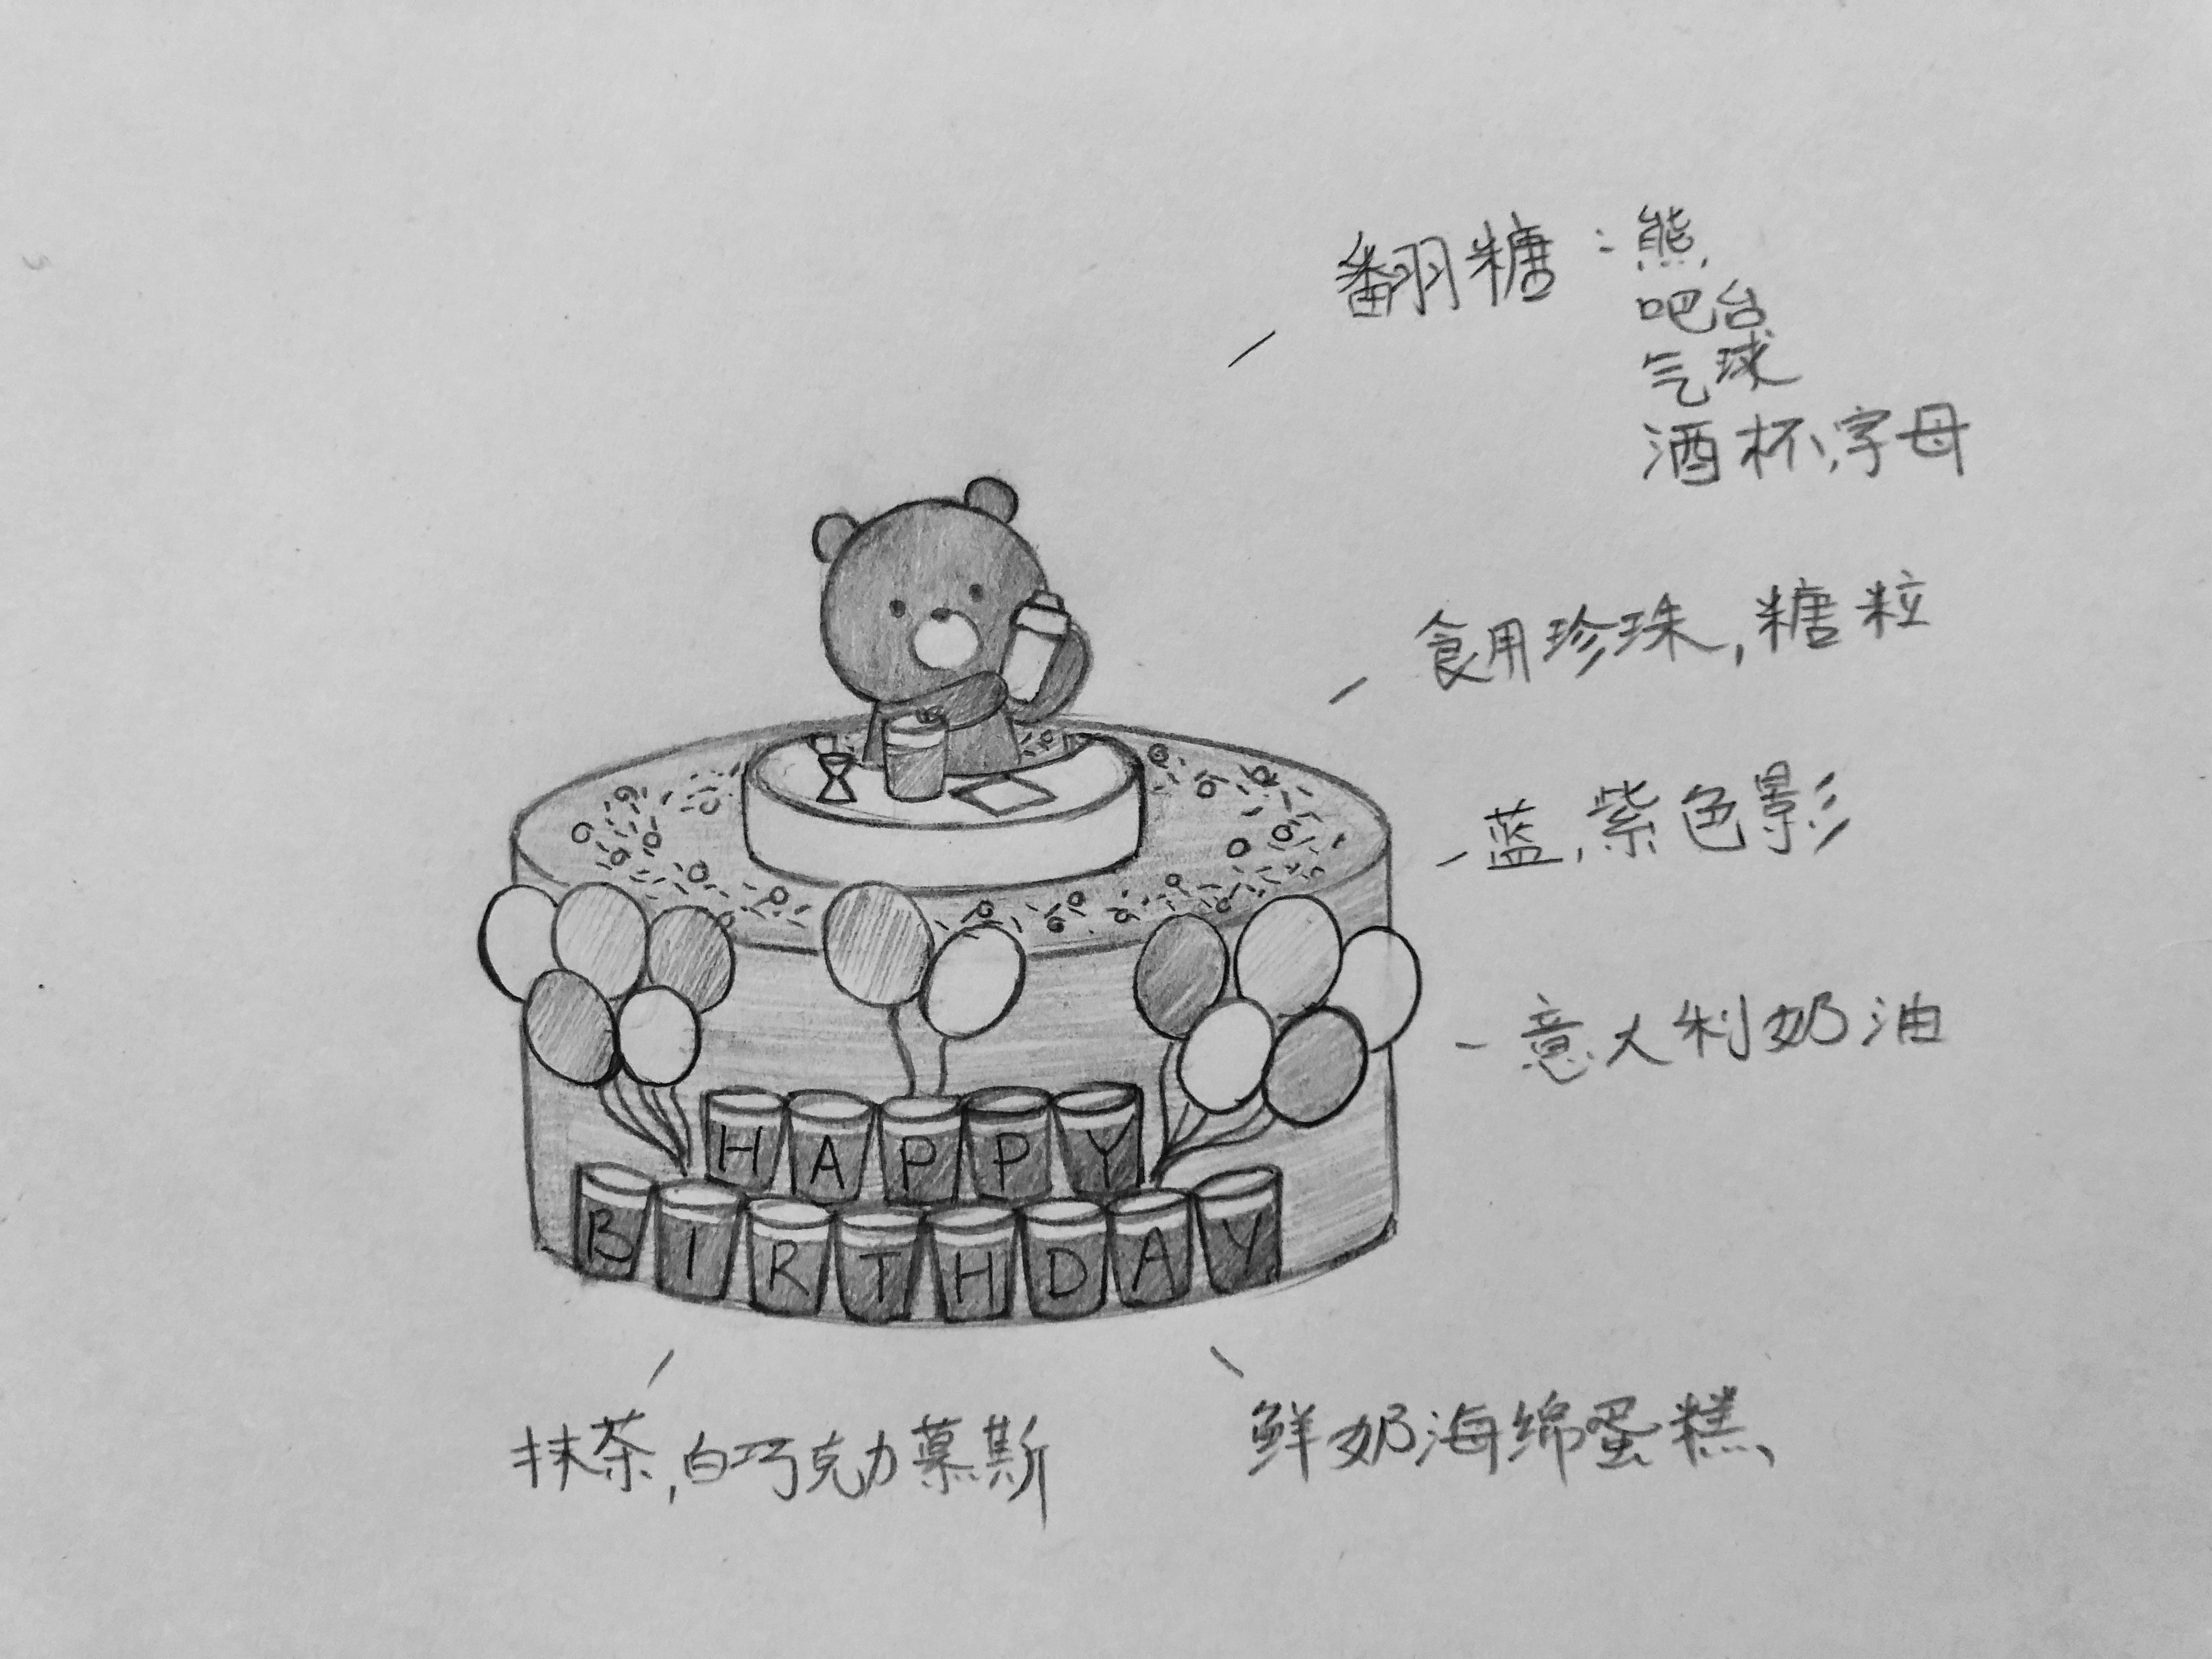 翻糖：熊，
吧台
气球
酒杯，字母
食用珍珠，糖粒
蓝，紫色影
意大利奶油
HAPPY
BIRTHDAY
抹茶，白巧克力慕斯
鲜奶海绵蛋糕、